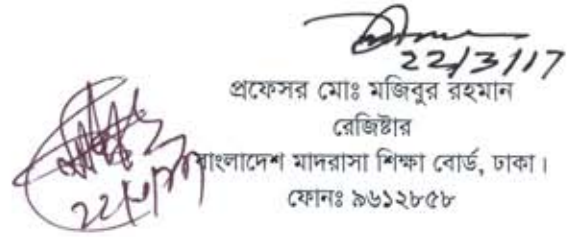 22/3/17
প্রফেসর মোঃ মজিবুর রহমান
রেজিষ্টার
বাংলাদেশ মাদরাসা শিক্ষা বোর্ড, ঢাকা।
ফোনঃ ৯৬১২৮৫৮